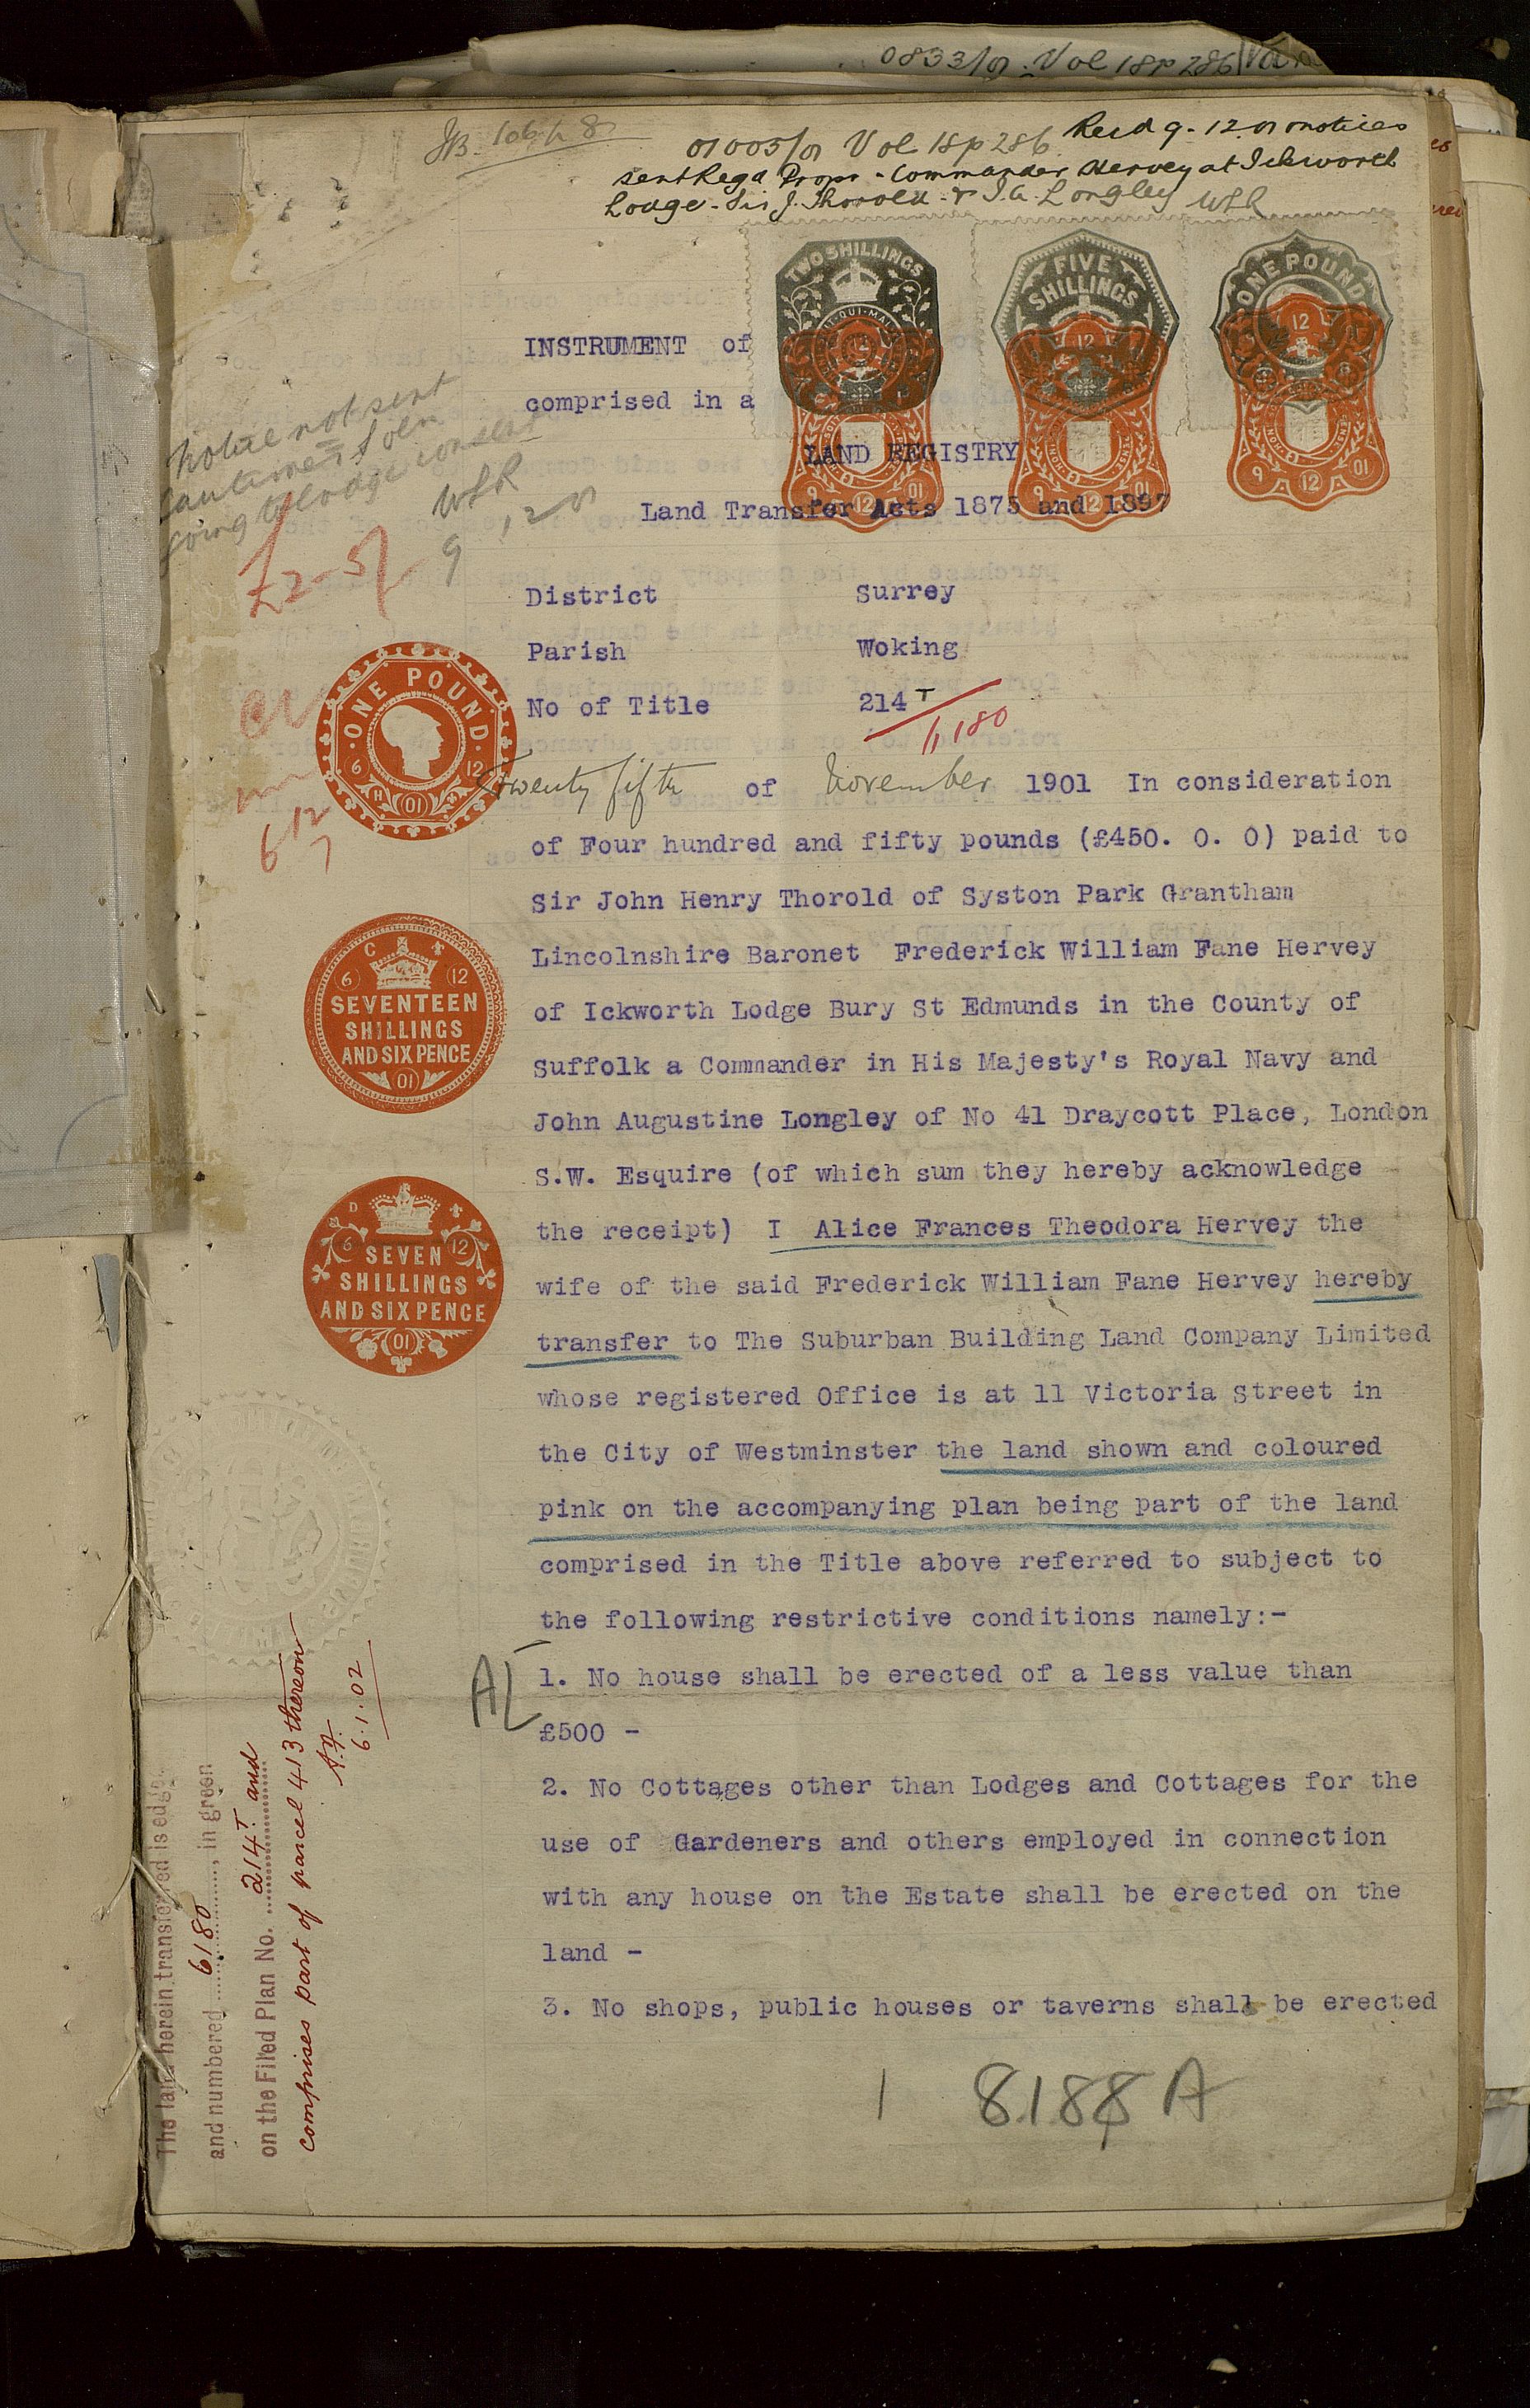 0833/01. Vol 18p 286
01005/01 Vol 18p 286. Recd 9-12-01 notices
sent Regd Propr - Commander Hervey at Ickworth
Lodge - Sir J. Thorold - & J.A. Longley WSR
TWO SHILLINGS
FIVE SHILLINGS
ONE POUND
INSTRUMENT of
comprised in a
LAND REGISTRY
Land Transfer Acts 1875 and 1897
9 12 01
9 12 01
9 12 01
Notice not sent
going to lodge consent
WSR
9 12 01
£2-5/
District Surrey
Parish Woking
No of Title 214T
6180
ONE POUND
6 12
H 01
Twenty fifth of November 1901 In consideration
of Four hundred and fifty pounds (£450. 0. 0) paid to
Sir John Henry Thorold of Syston Park Grantham
Lincolnshire Baronet Frederick William Fane Hervey
of Ickworth Lodge Bury St Edmunds in the County of
Suffolk a Commander in His Majesty's Royal Navy and
John Augustine Longley of No 41 Draycott Place, London
S.W. Esquire (of which sum they hereby acknowledge
the receipt) I Alice Frances Theodora Hervey the
wife of the said Frederick William Fane Hervey hereby
transfer to The Suburban Building Land Company Limited
whose registered Office is at 11 Victoria Street in
the City of Westminster the land shown and coloured
pink on the accompanying plan being part of the land
comprised in the Title above referred to subject to
the following restrictive conditions namely:-
1. No house shall be erected of a less value than
£500 -
2. No Cottages other than Lodges and Cottages for the
use of Gardeners and others employed in connection
with any house on the Estate shall be erected on the
land -
3. No shops, public houses or taverns shall be erected
C
6 12
SEVENTEEN
SHILLINGS
AND SIX PENCE
01
D
6 12
SEVEN
SHILLINGS
AND SIX PENCE
01
AL
The land herein transferred is edged
and numbered 6180, in green
on the Filed Plan No. 214T and
comprises part of parcel 413 thereon
6.1.02
1 8188 A